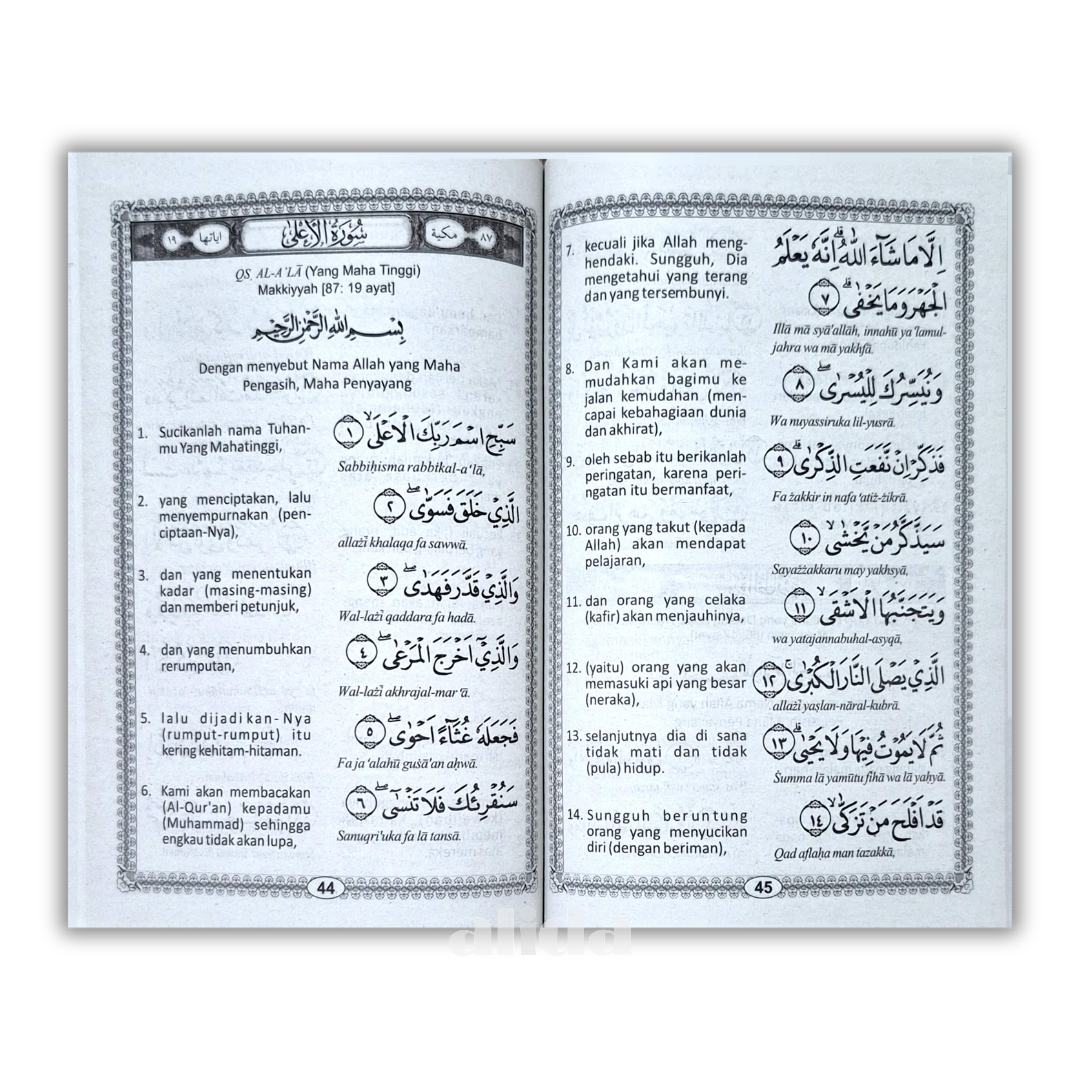 ٨٧ مكية سُوْرَةُ الْاَعْلٰى اياتها ١٩
QS. AL-A‘LĀ (Yang Maha Tinggi)
Makkiyyah [87: 19 ayat]
بِسْمِ اللهِ الرَّحْمٰنِ الرَّحِيْمِ
Dengan menyebut Nama Allah yang Maha
Pengasih, Maha Penyayang
1. Sucikanlah nama Tuhan-
mu Yang Mahatinggi,
سَبِّحِ اسْمَ رَبِّكَ الْاَعْلَىۙ ١
Sabbiḥisma rabbikal-a‘lā,
2. yang menciptakan, lalu
menyempurnakan (pen-
ciptaan-Nya),
الَّذِيْ خَلَقَ فَسَوّٰىۖ ٢
allażī khalaqa fa sawwā.
3. dan yang menentukan
kadar (masing-masing)
dan memberi petunjuk,
وَالَّذِيْ قَدَّرَ فَهَدٰىۖ ٣
Wal-lażī qaddara fa hadā.
4. dan yang menumbuhkan
rerumputan,
وَالَّذِيْٓ اَخْرَجَ الْمَرْعٰىۖ ٤
Wal-lażī akhrajal-mar‘ā.
5. lalu dijadikan-Nya
(rumput-rumput) itu
kering kehitam-hitaman.
فَجَعَلَهٗ غُثَاۤءً اَحْوٰىۖ ٥
Fa ja‘alahū guśā'an aḥwā.
6. Kami akan membacakan
(Al-Qur'an) kepadamu
(Muhammad) sehingga
engkau tidak akan lupa,
سَنُقْرِئُكَ فَلَا تَنْسٰىۖ ٦
Sanuqri'uka fa lā tansā.
44
7. kecuali jika Allah meng-
hendaki. Sungguh, Dia
mengetahui yang terang
dan yang tersembunyi.
اِلَّا مَا شَاۤءَ اللهُۗ اِنَّهٗ يَعْلَمُ
الْجَهْرَ وَمَا يَخْفٰىۗ ٧
Illā mā syā'allāh, innahū ya‘lamul-
jahra wa mā yakhfā.
8. Dan Kami akan me-
mudahkan bagimu ke
jalan kemudahan (men-
capai kebahagiaan dunia
dan akhirat),
وَنُيَسِّرُكَ لِلْيُسْرٰىۖ ٨
Wa nuyassiruka lil-yusrā.
9. oleh sebab itu berikanlah
peringatan, karena peri-
ngatan itu bermanfaat,
فَذَكِّرْ اِنْ نَّفَعَتِ الذِّكْرٰىۗ ٩
Fa żakkir in nafa‘atiż-żikrā.
10. orang yang takut (kepada
Allah) akan mendapat
pelajaran,
سَيَذَّكَّرُ مَنْ يَّخْشٰىۙ ١٠
Sayażżakkaru may yakhsyā,
11. dan orang yang celaka
(kafir) akan menjauhinya,
وَيَتَجَنَّبُهَا الْاَشْقَىۙ ١١
wa yatajannabuhal-asyqā,
12. (yaitu) orang yang akan
memasuki api yang besar
(neraka),
الَّذِيْ يَصْلَى النَّارَ الْكُبْرٰىۚ ١٢
allażī yaṣlan-nāral-kubrā.
13. selanjutnya dia di sana
tidak mati dan tidak
(pula) hidup.
ثُمَّ لَا يَمُوْتُ فِيْهَا وَلَا يَحْيٰىۗ ١٣
Śumma lā yamūtu fīhā wa lā yaḥyā.
14. Sungguh beruntung
orang yang menyucikan
diri (dengan beriman),
قَدْ اَفْلَحَ مَنْ تَزَكّٰىۙ ١٤
Qad aflaḥa man tazakkā,
45
alida